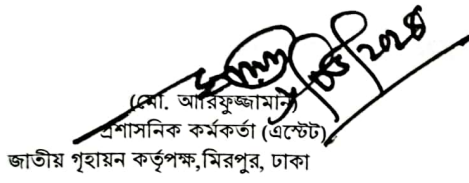 (মো. আরিফুজ্জামান)
প্রশাসনিক কর্মকর্তা (এস্টেট)
জাতীয় গৃহায়ন কর্তৃপক্ষ,মিরপুর, ঢাকা